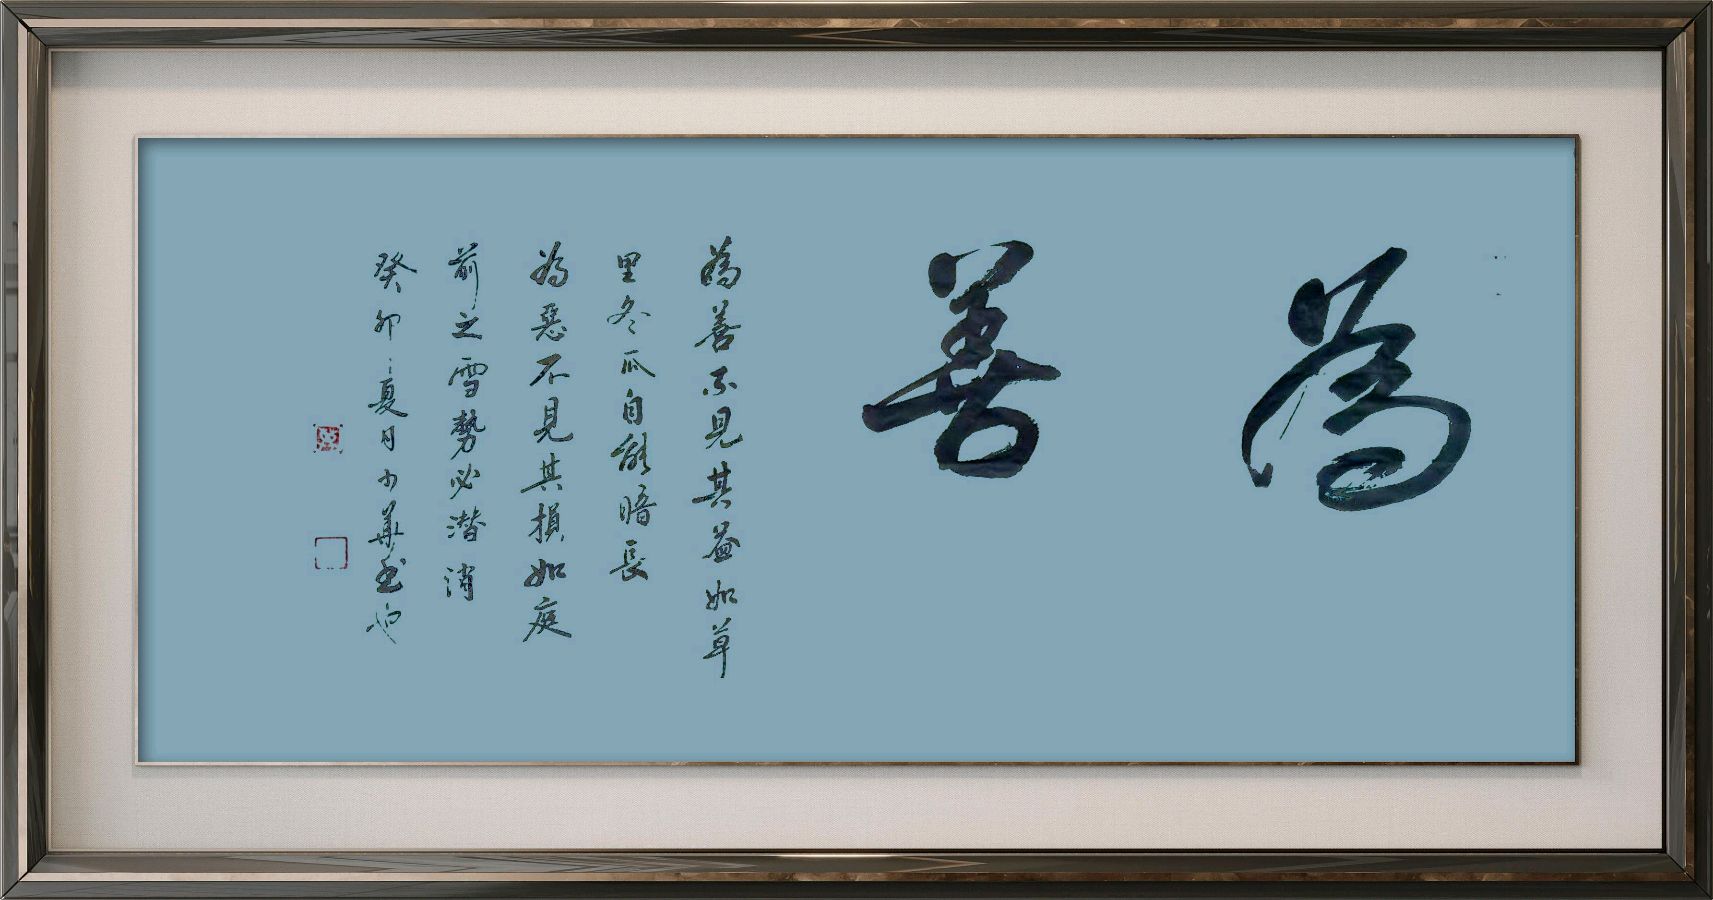 為善
為善不見其益如草
里冬瓜自能暗長
為惡不見其損如庭
前之雪勢必潛消
癸卯夏月少華書